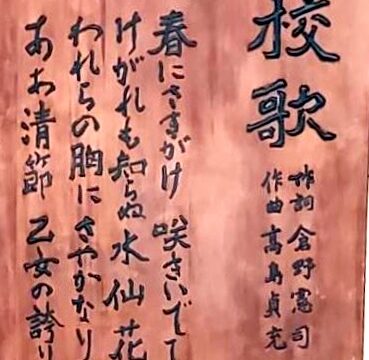 校歌
作詞 倉野憲司
作曲 高島貞充
春にさきがけ 咲きいでて
けがれも知らぬ水仙花
われらの胸にさやかなり
ああ清節 乙女の誇り